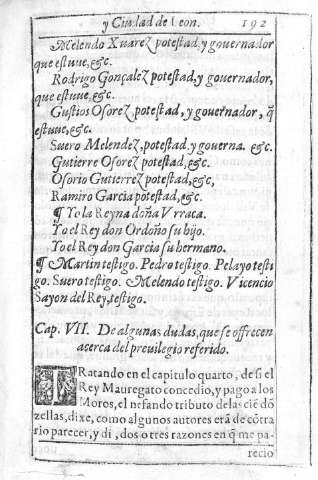 y Ciudad de Leon. 192
Melendo Xuarez potestad, y governador
que estuue, &c.
Rodrigo Gonçalez potestad, y governador,
que estuue, &c.
Gustios Osorez potestad, y governador, q̃
estuue, &c.
Suero Melendez, potestad, y governa. &c.
Gutierre Osorez potestad, &c.
Osorio Gutierrez potestad, &c,
Ramiro Garcia potestad, &c.
¶ Yo la Reyna doña Vrraca.
Yo el Rey don Ordoño su hijo.
Yo el Rey don Garcia su hermano.
¶ Martin testigo. Pedro testigo. Pelayo testi
go. Suero testigo. Melendo testigo. Vicencio
Sayon del Rey, testigo.
Cap. VII. De algunas dudas, que se offrecen
acerca del preuilegio referido.
TRatando en el capitulo quarto, de si el
Rey Mauregato concedio, y pago a los
Moros, el nefando tributo de las ciẽ dõ
zellas, dixe, como algunos autores erã de cõtra
rio parecer, y di, dos o tres razones en q̃ me pa-
recio